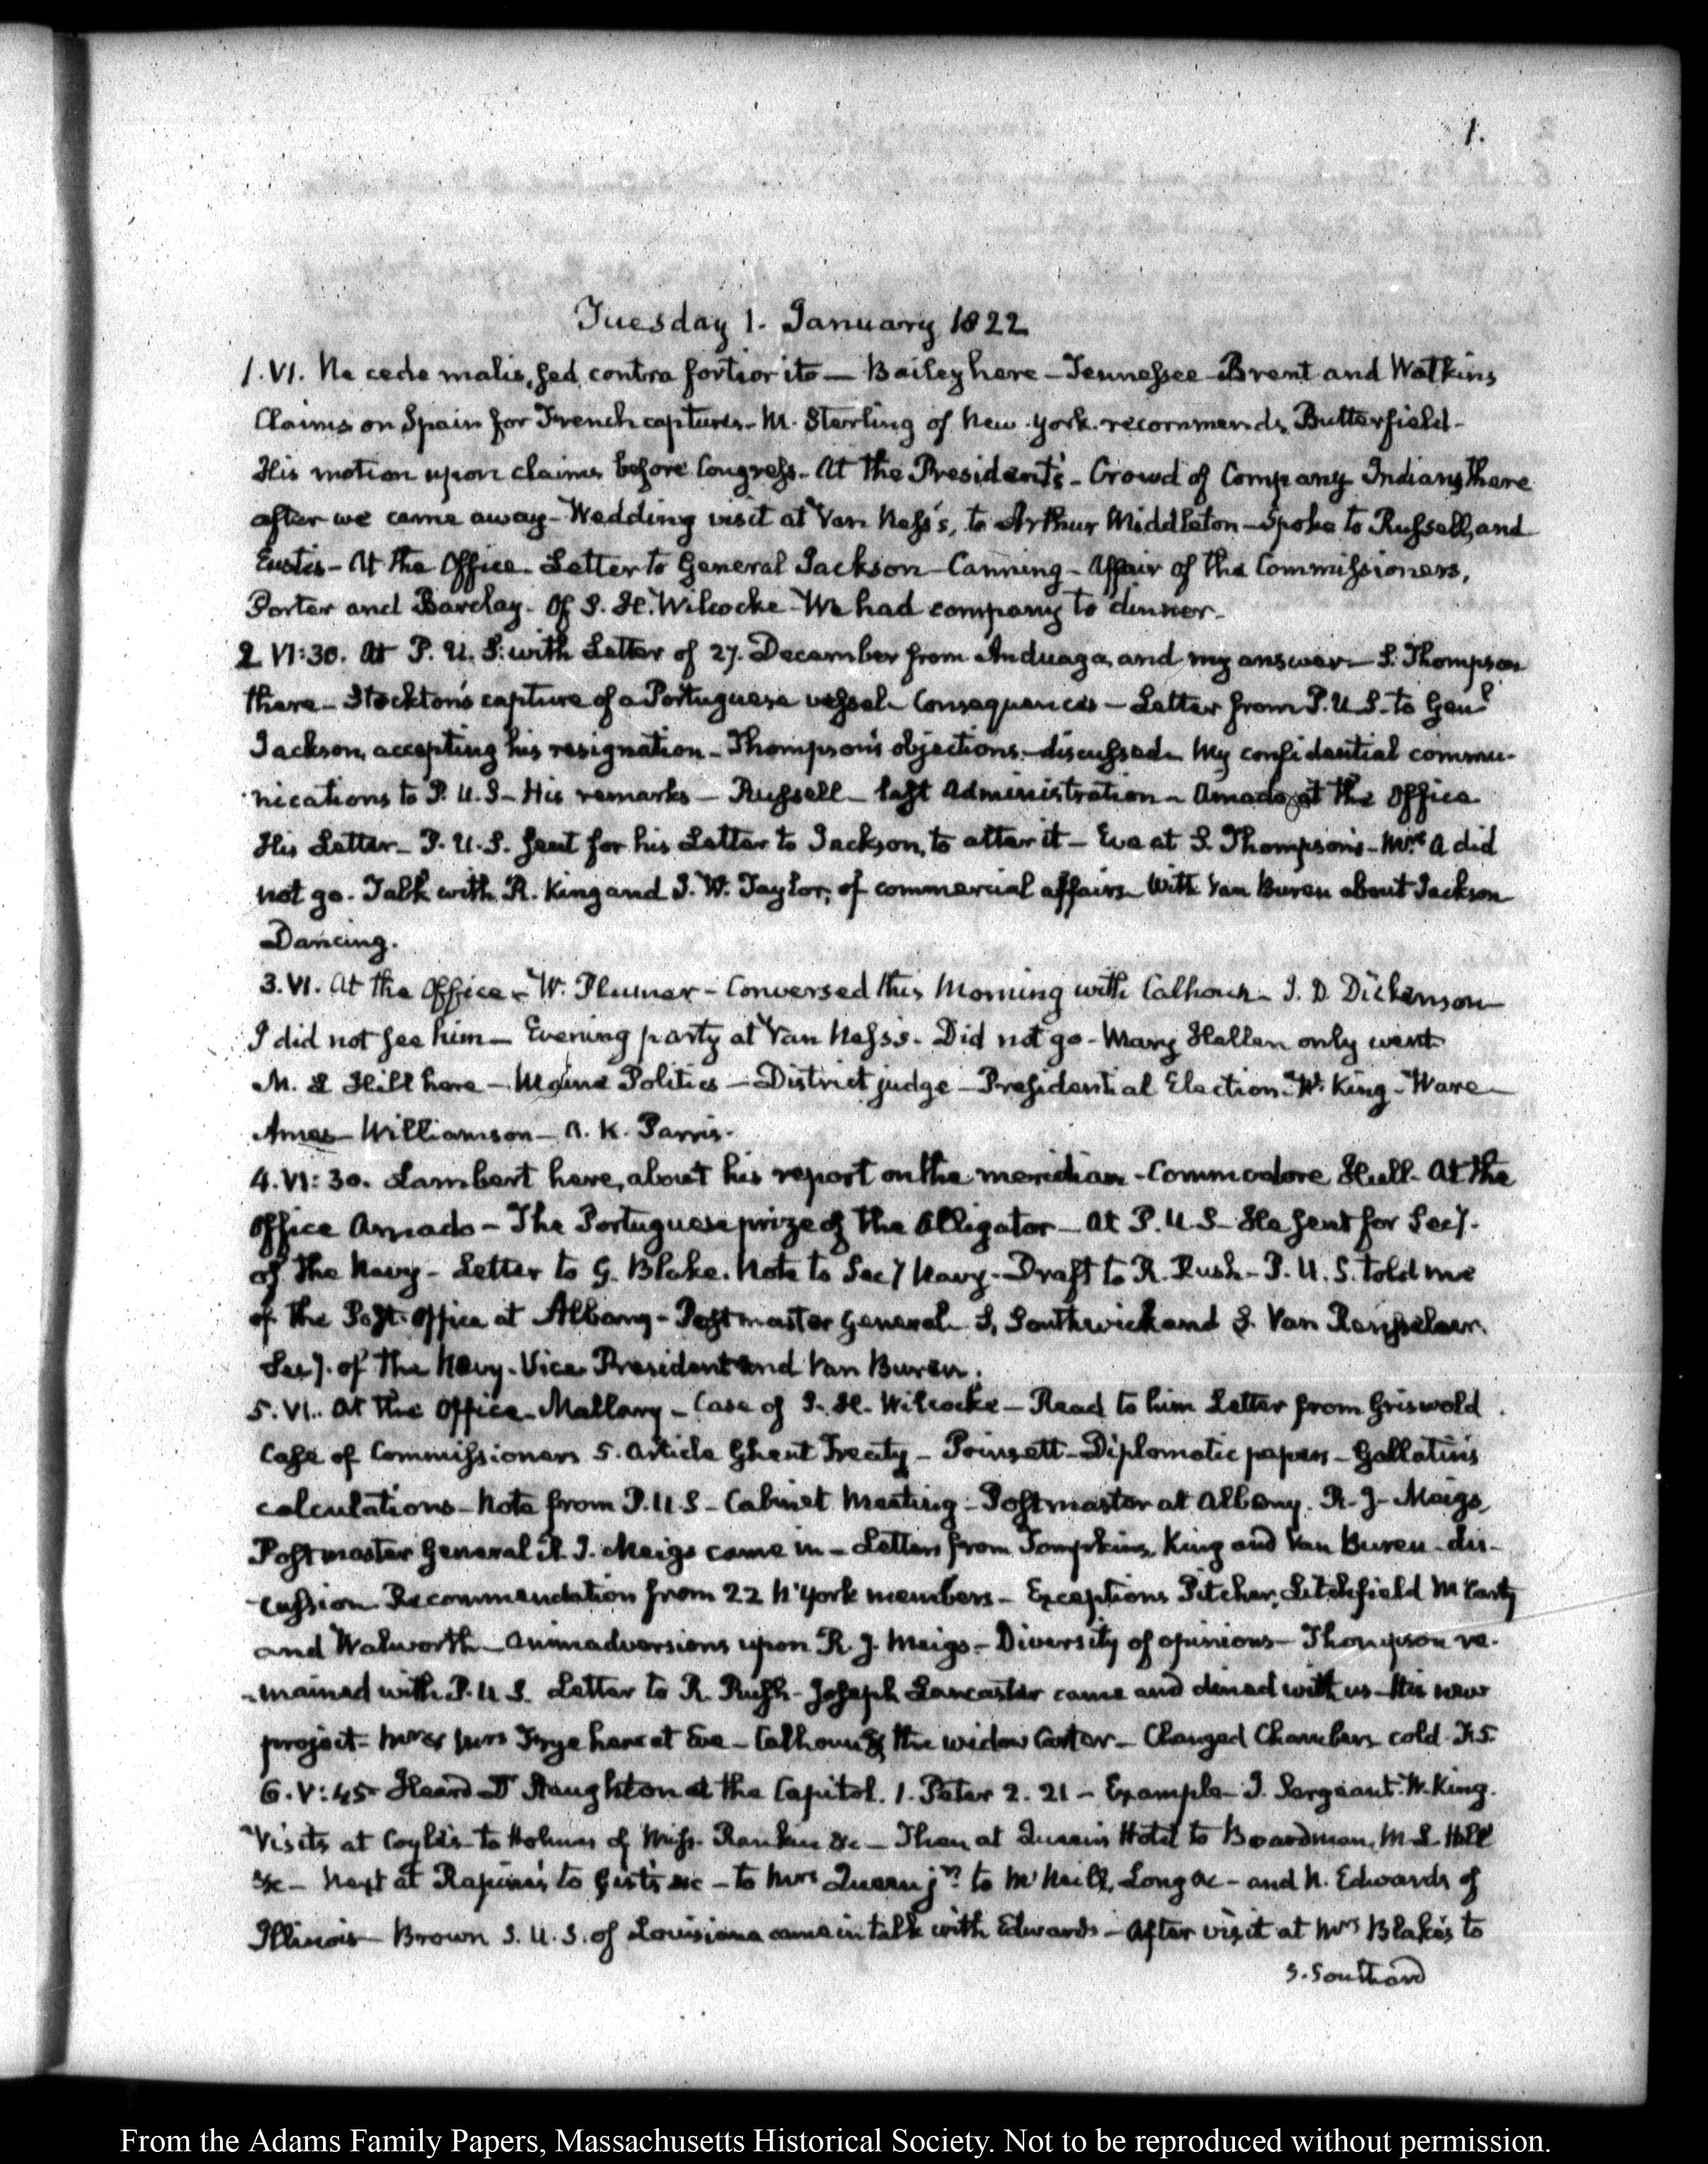 1.
Tuesday 1. January 1822
1. VI. Ne cede malis, sed contra fortior ito — Bailey here — Tennessee Brent and Watkins
Claims on Spain for French captures — M. Sterling of New York recommends Butterfield —
His motion upon claims before Congress — At the President's — Crowd of Company Indians there
after we came away — Wedding visit at Van Ness's, to Arthur Middleton — Spoke to Russell, and
Eustis — At the Office — Letter to General Jackson — Canning — Affair of the Commissioners,
Porter and Barclay. Of S. H. Wilcocke — We had company to dinner.
2 VI:30. At P. U. S. with Letter of 27. December from Anduaga, and my answer — S. Thompson
there — Stockton's capture of a Portuguese vessel — Consequences — Letter from P. U. S. to Genl
Jackson, accepting his resignation — Thompson's objections — discussed — My confidential commu-
nications to P. U. S — His remarks — Russell — last Administration — Amado at the Office
His Letter — P. U. S. sent for his Letter to Jackson, to alter it — Eve at S. Thompson's — Mrs A did
not go. Talk with R. King and J. W. Taylor, of commercial affairs — With Van Buren about Jackson
Dancing.
3. VI. At the Office — W. Plumer — Conversed this Morning with Calhoun — J. D. Dickinson
I did not see him — Evening party at Van Ness's. Did not go — Mary Hellen only went
M. L Hill here — Maine Politics — District judge — Presidential Election — W. King — Ware —
Ames — Williamson — A. K. Parris.
4. VI:30. Lambert here, about his report on the meridian — Commodore Hull — At the
Office Amado — The Portuguese prize of the Alligator — At P. U. S — He sent for Secy.
of the Navy — Letter to G. Blake. Note to Secy Navy — Draft to R. Rush — P. U. S. told me
of the Post-Office at Albany — Postmaster General. S. Southwick and S. Van Rensselaer.
Secy. of the Navy. Vice President and Van Buren.
5. VI. At the Office — Mallary — Case of S. H. Wilcocke — Read to him Letter from Griswold.
Case of Commissioners 5. Article Ghent Treaty — Poinsett — Diplomatic papers — Gallatin's
calculations — Note from P. U. S — Cabinet Meeting — Postmaster at Albany. R. J. Meigs,
Postmaster General R. J. Meigs came in — Letters from Tompkins, King and Van Buren — dis-
cussion — Recommendation from 22 N'York members — Exceptions Pitcher, Litchfield McCarty
and Walworth — Animadversions upon R. J. Meigs — Diversity of opinions — Thompson re-
mained with P. U. S. Letter to R. Rush — Joseph Lancaster came and dined with us — His new
project — Mr & Mrs Frye here at Eve — Calhoun & the widow Carter — Changed Chambers cold.
6. V:45 Heard Dr Staughton at the Capitol. 1. Peter 2. 21 — Example — J. Sergeant. W. King.
Visits at Coyle's — to Holmes of Miss. Rankin &c — Then at Queen's Hotel to Boardman, M. L. Hill
&c — Next at Rapine's to Gist's &c — to Mrs Queen jr. to McNeill, Long &c — and N. Edwards of
Illinois — Brown S. U. S. of Louisiana came in talk with Edwards — After visit at Mrs Blake's to
S. Southard
From the Adams Family Papers, Massachusetts Historical Society. Not to be reproduced without permission.